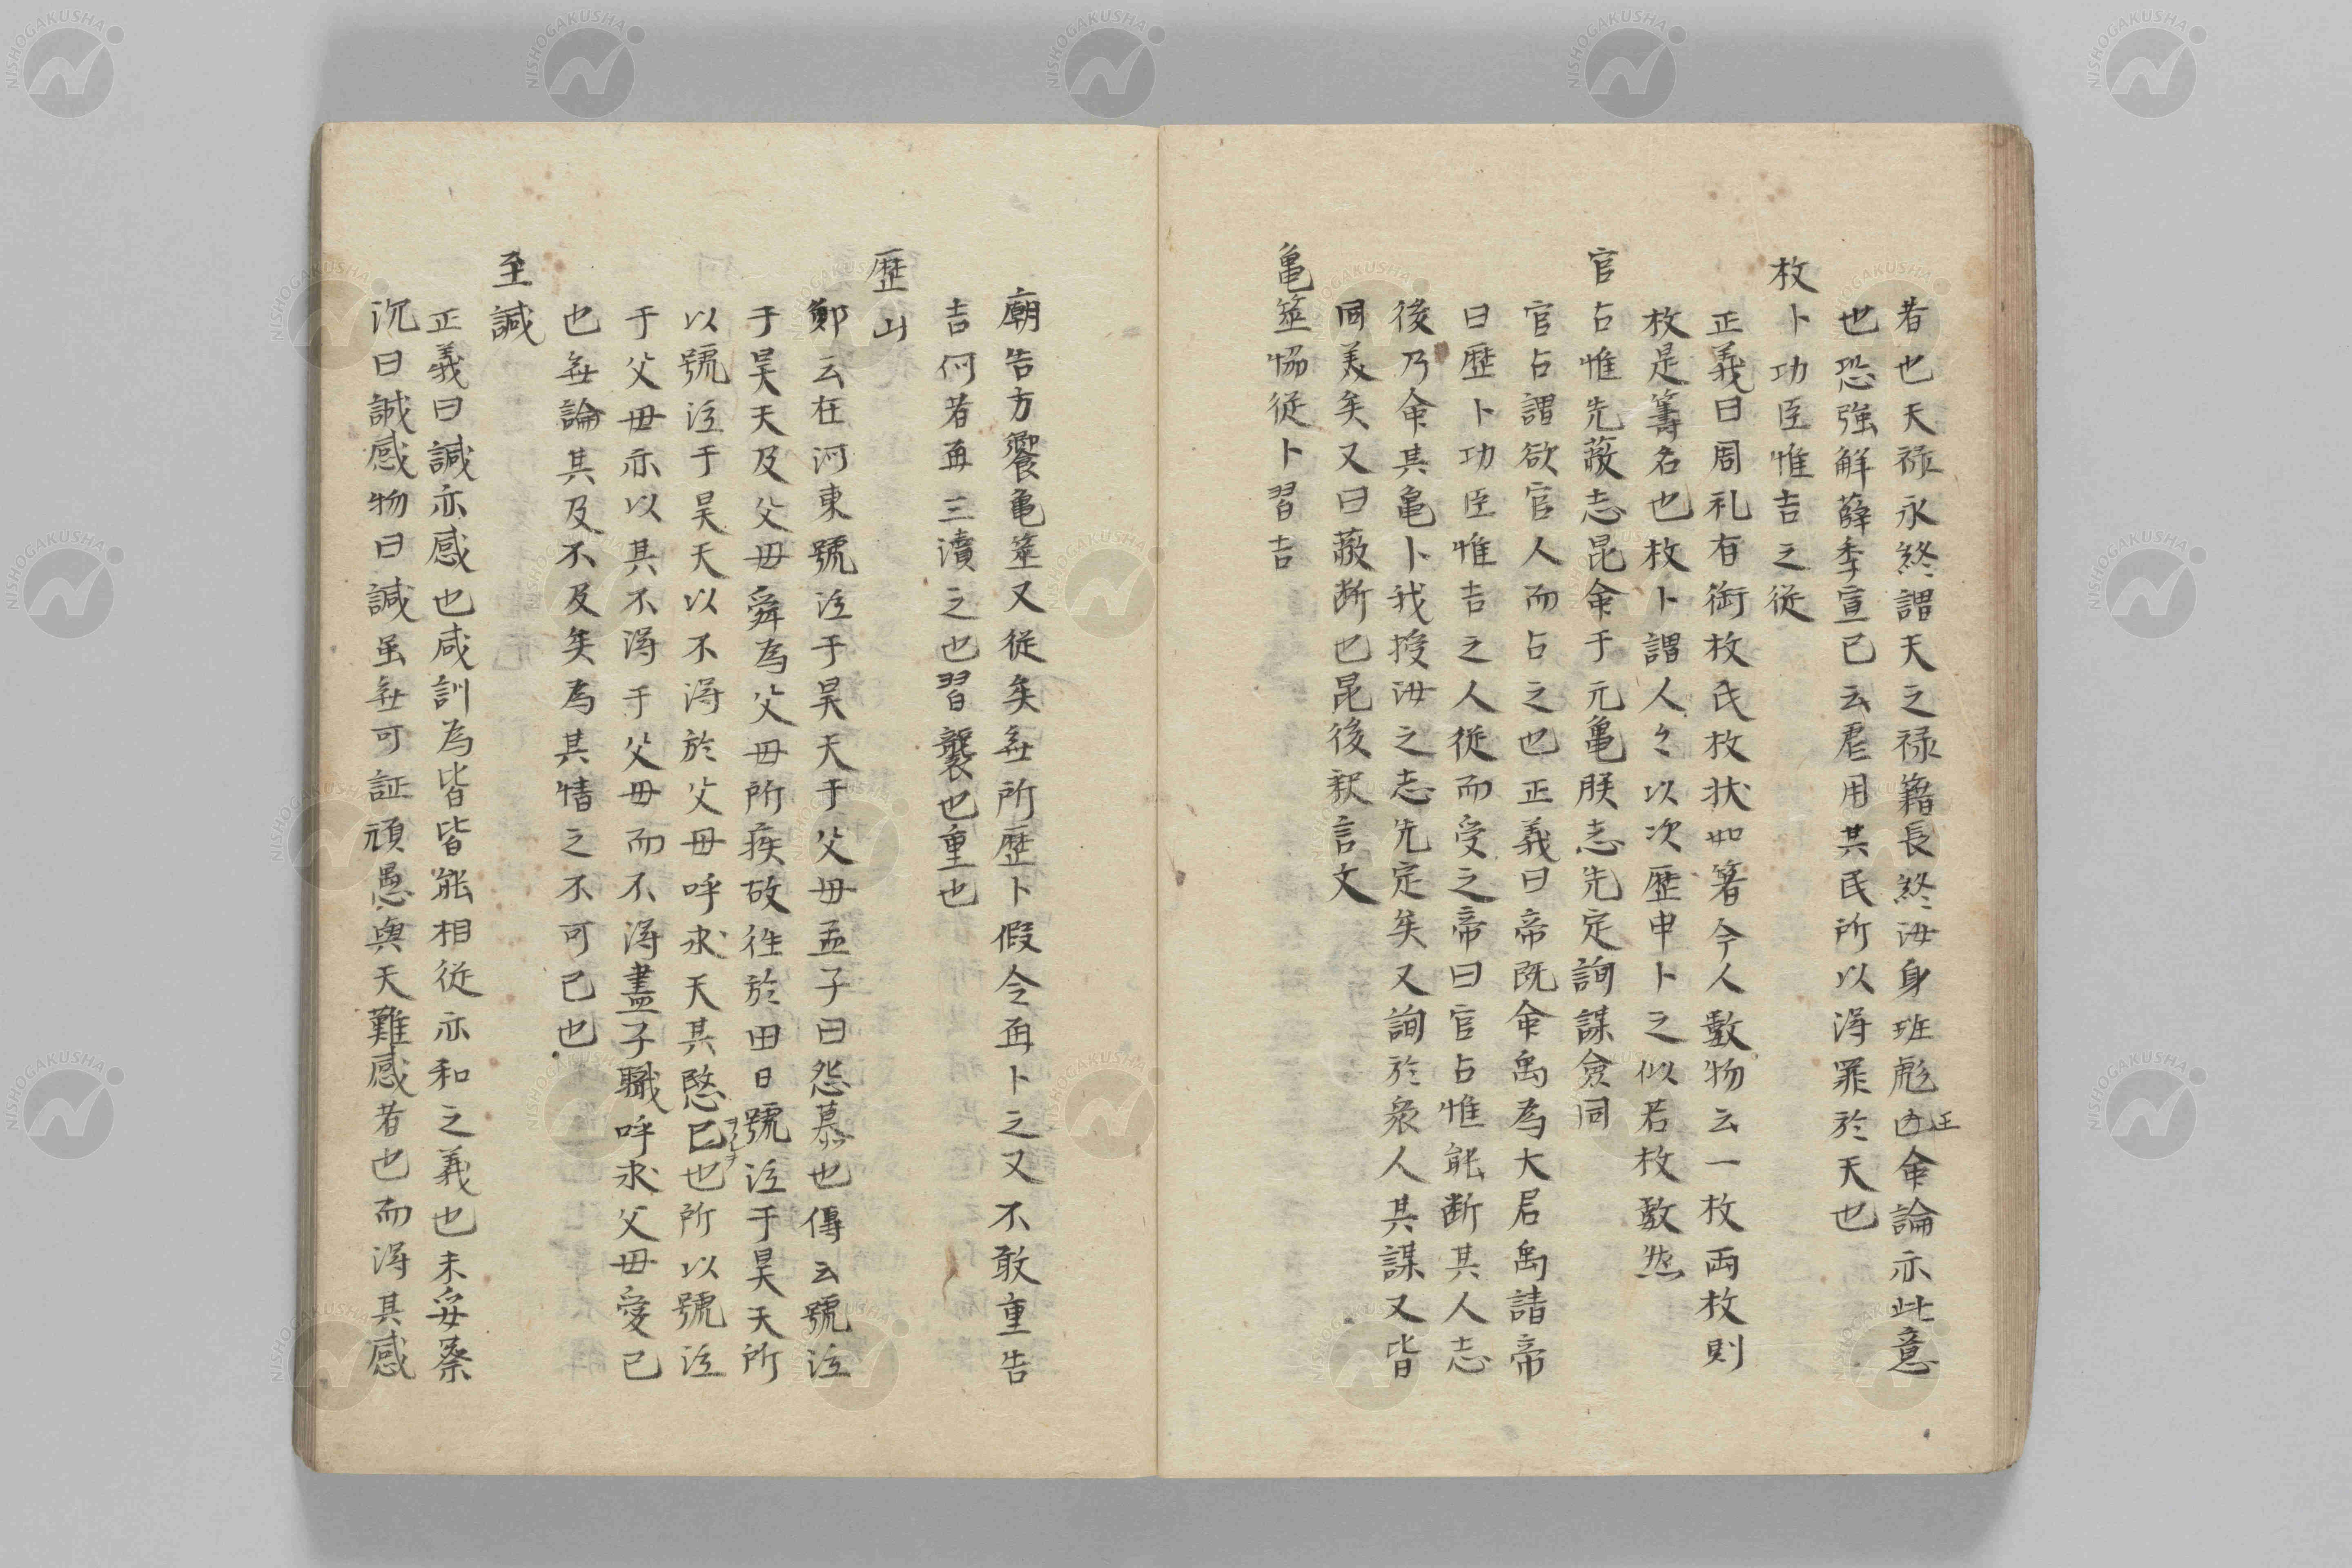 若也天祿永終謂天之祿籍長終汝身班彪王命論亦此意
也恐強解薛季宣已云虐用其民所以得罪於天也
枚卜功臣惟吉之從
正義曰周礼有銜枚氏枚状如箸今人數物云一枚兩枚則
枚是籌名也枚卜謂人〻以次歷申卜之似若枚數然
官占惟先蔽志昆命于元亀朕志先定詢謀僉同
官占謂欲官人而占之也正義曰帝既命禹為大君禹請帝
曰歷卜功臣惟吉之人從而受之帝曰官占惟能断其人志
後乃命其亀卜我授汝之志先定矣又詢於衆人其謀又皆
同美矣又曰蔽断也昆後釈言文
亀筮恊従卜習吉
廟告方饗亀筮又従矣無所歷卜假令再卜之又不敢重告
吉何若再三瀆之也習襲也重也
歴山
鄭云在河東號泣于昊天于父母孟子曰怨慕也傳云號泣
于昊天及父母舜為父母所疾故往於田日號泣于昊天所
以號泣于昊天以不得於父母呼求天其愍已也所以號泣
コレヲ
于父母亦以其不得于父母而不得盡子職呼求父母愛已
也無論其及不及矣為其情之不可已也
至諴
正義曰諴亦感也咸訓為皆皆能相従亦和之義也未妥蔡
沉曰誠感物曰諴虽無可証頑愚與天難感者也而得其感
NISHOGAKUSHA